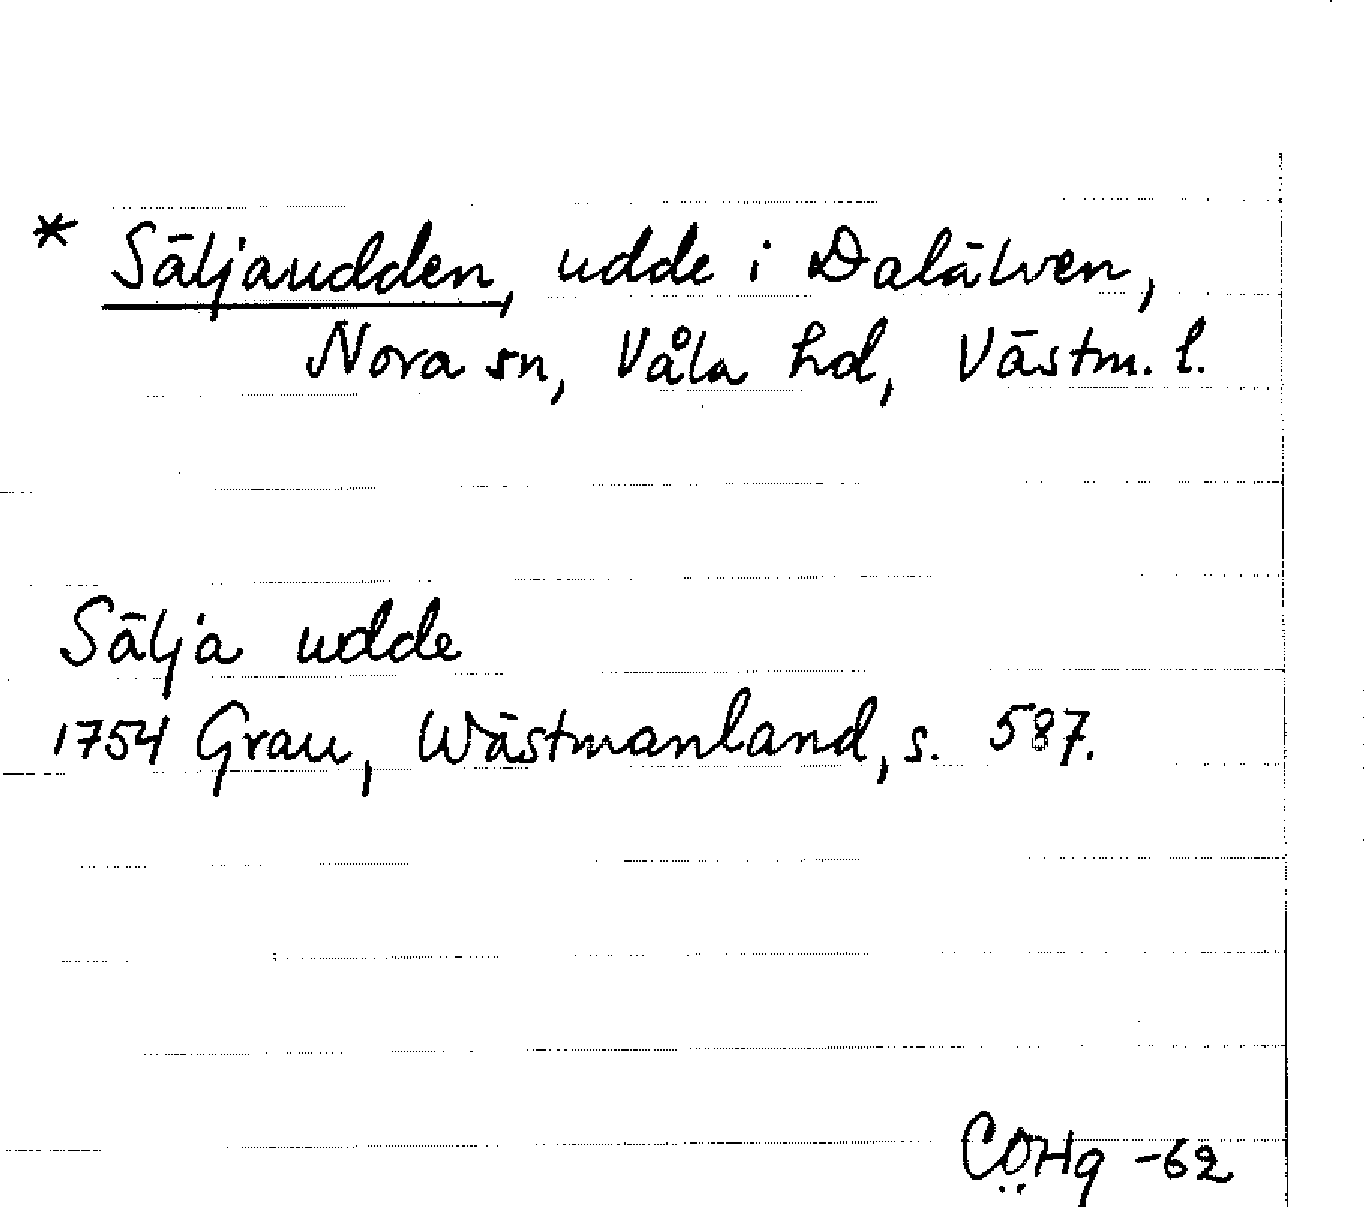 * Säljaudden, udde i Dalälven,
Nora sn, Våla hd, Västm. l.
Sälja udde
1754 Grau, Wästmanland, s. 587.
CÖHg -62